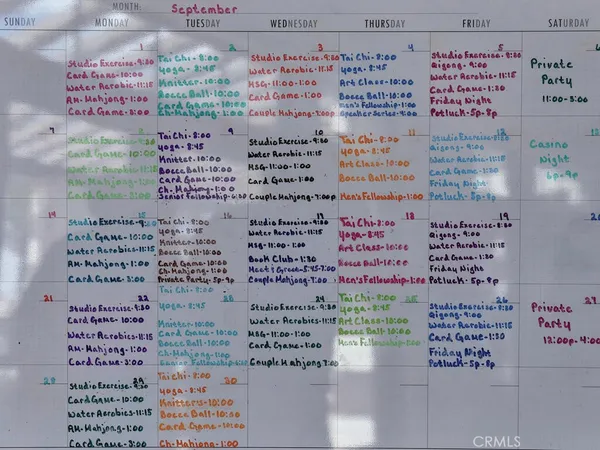 MONTH: September
SUNDAY MONDAY TUESDAY WEDNESDAY THURSDAY FRIDAY SATURDAY
1
Studio Exercise-9:30
Card Game-10:00
Water Aerobics-11:15
Am-Mahjong-1:00
Card Game-3:00
2
Tai Chi-8:00
Yoga-8:45
Knitter-10:00
Bocce Ball-10:00
Card Game-10:00
Ch-Mahjong-1:00
3
Studio Exercise-9:30
Water Aerobic-11:15
MSG-11:00-1:00
Card Game-1:00
Couple Mahjong-7:00p
4
Tai Chi-8:00
Yoga-8:45
Art Class-10:00
Bocce Ball-10:00
Men's Fellowship-1:00
Speaker Series-9:00
5
Studio Exercise-9:30
Qigong-9:00
Water Aerobics-11:15
Card Game-1:30
Friday Night
Potluck-5p-8p
6
Private
Party
11:00-3:00
7
8
Studio Exercise-9:30
Card Game-10:00
Water Aerobics-11:15
Am-Mahjong-1:00
Card Game-3:00
9
Tai Chi-8:00
Yoga-8:45
Knitter-10:00
Bocce Ball-10:00
Card Game-10:00
Ch-Mahjong-1:00
Senior Fellowship-6:30
10
Studio Exercise-9:30
Water Aerobic-11:15
MSG-11:00-1:00
Card Game-1:00
Couple Mahjong-7:00p
11
Tai Chi-8:00
Yoga-8:45
Art Class-10:00
Bocce Ball-10:00
Men's Fellowship-1:00
12
Studio Exercise-9:30
Qigong-9:00
Water Aerobics-11:15
Card Game-1:00
Friday Night
Potluck-5p-8p
Casino
Night
6p-9p
14
15
Studio Exercise-9:30
Card Game-10:00
Water Aerobics-11:15
Am-Mahjong-1:00
Card Game-3:00
16
Tai Chi-8:00
Yoga-8:45
Knitter-10:00
Bocce Ball-10:00
Card Game-10:00
Ch-Mahjong-1:00
Private Party-5p-9p
Studio Exercise-9:30
Water Aerobic-11:15
MSG-11:00-1:00
Book Club-1:30
Meet & Greet-5:45-7:00
Couple Mahjong-7:00
18
Tai Chi-8:00
Yoga-8:45
Art Class-10:00
Bocce Ball-10:00
Men's Fellowship-1:00
19
Studio Exercise-9:30
Qigong-9:00
Water Aerobic-11:15
Card Game-1:30
Friday Night
Potluck-5p-8p
21
22
Studio Exercise-9:30
Card Game-10:00
Water Aerobics-11:15
Am-Mahjong-1:00
Card Game-3:00
Tai Chi-8:00
Yoga-8:45
Knitter-10:00
Card Game-10:00
Bocce Ball-10:00
Ch-Mahjong-1:00
24
Studio Exercise-9:30
Water Aerobic-11:15
MSG-11:00-1:00
Card Game-1:00
Couple Mahjong 7:00
25
Tai Chi-8:00
Yoga-8:45
Art Class-10:00
Bocce Ball-10:00
Men's Fellowship-1:00
26
Studio Exercise-9:30
Qigong-9:00
Water Aerobic-11:15
Card Game-1:30
Friday Night
Potluck-5p-8p
27
Private
Party
12:00p-4:00
28
29
Studio Exercise-9:30
Card Game-10:00
Water Aerobics-11:15
Am-Mahjong-1:00
Card Game-3:00
30
Tai Chi-8:00
Yoga-8:45
Knitters-10:00
Bocce Ball-10:00
Card Game-10:00
Ch-Mahjong-1:00
CRMLS